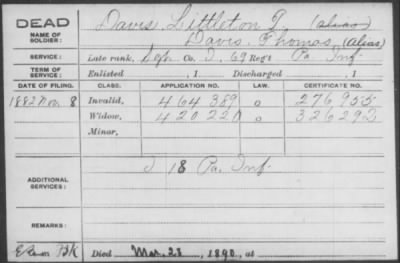 DEAD Davis, Littleton T. (alias)
NAME OF SOLDIER: Davis, Thomas (Alias)
SERVICE: Late rank, Co. I, 69 Reg't Pa. Inf.
TERM OF SERVICE: Enlisted , 1 Discharged , 1
DATE OF FILING. CLASS. APPLICATION NO. LAW. CERTIFICATE NO.
1882 Nov. 8 Invalid, 464 389 o 276 955
Widow, 420 220 o 326 292
Minor,
ADDITIONAL SERVICES: I 18 Pa. Inf.
REMARKS:
Died Mar. 28, 1890, at